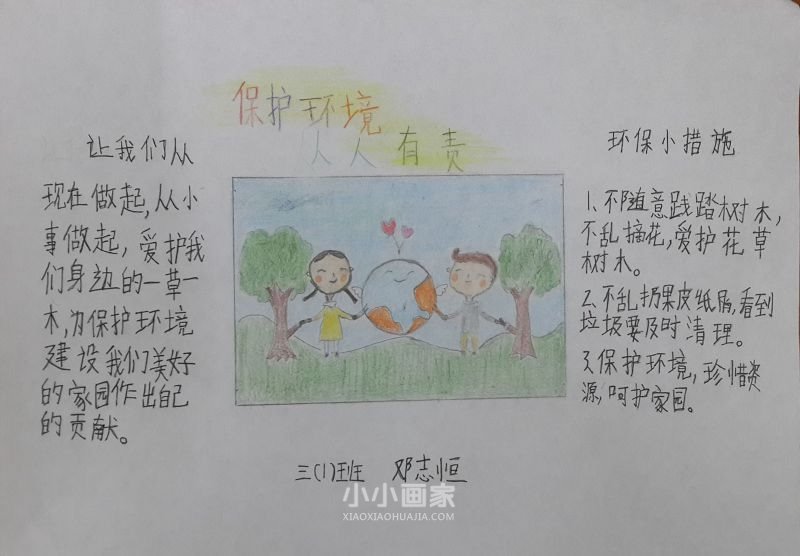 保护环境
人人有责
让我们从
现在做起,从小
事做起,爱护我
们身边的一草一
木,为保护环境
建设我们美好
的家园作出自己
的贡献。
环保小措施
1.不随意践踏树木,
不乱摘花,爱护花草
树木。
2.不乱扔果皮纸屑,看到
垃圾要及时清理。
3.保护环境,珍惜资
源,呵护家园。
三(1)班 邓志恒
小小画家
XIAOXIAOHUAJIA.COM